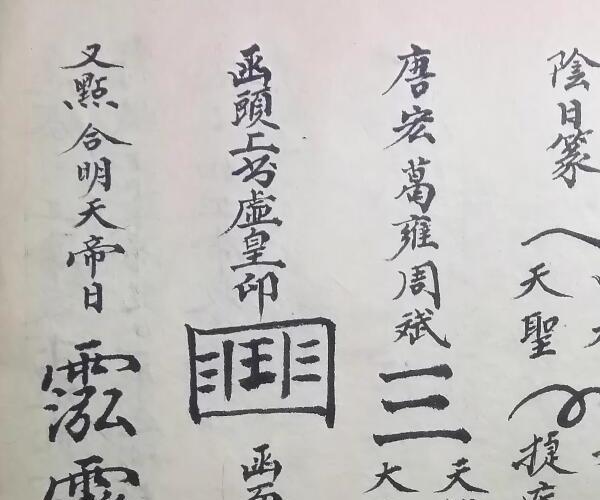 陰日篆
天聖
捷
唐宏葛雍周斌
三
大 天
函頭上书虚皇印
函
又點合明天帝日